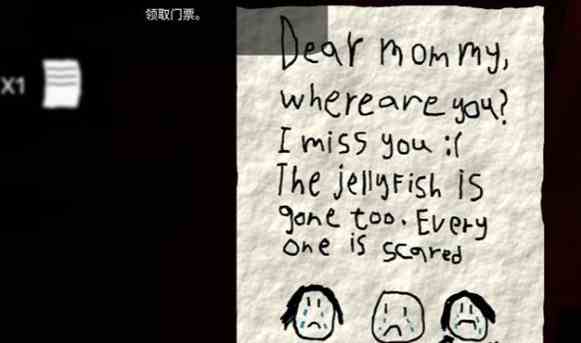 领取门票。
X1
Dear mommy,
where are you?
I miss you :(
The jellyfish is
gone too. Every
one is scared